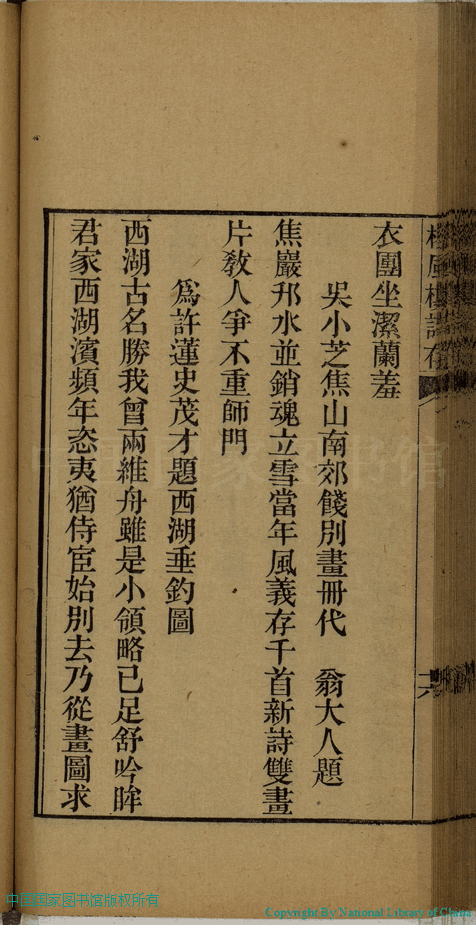 衣團坐潔蘭羞
吳小芝焦山南郊餞別畫冊代　翁大人題
焦巖邗水並銷魂立雪當年風義存千首新詩雙畫
片教人爭不重師門
爲許蓮史茂才題西湖垂釣圖
西湖古名勝我曾兩維舟雖是小領略已足舒吟眸
君家西湖濱頻年恣夷猶侍宦始別去乃從畫圖求
中国国家图书馆版权所有
Copyright By National Library of China